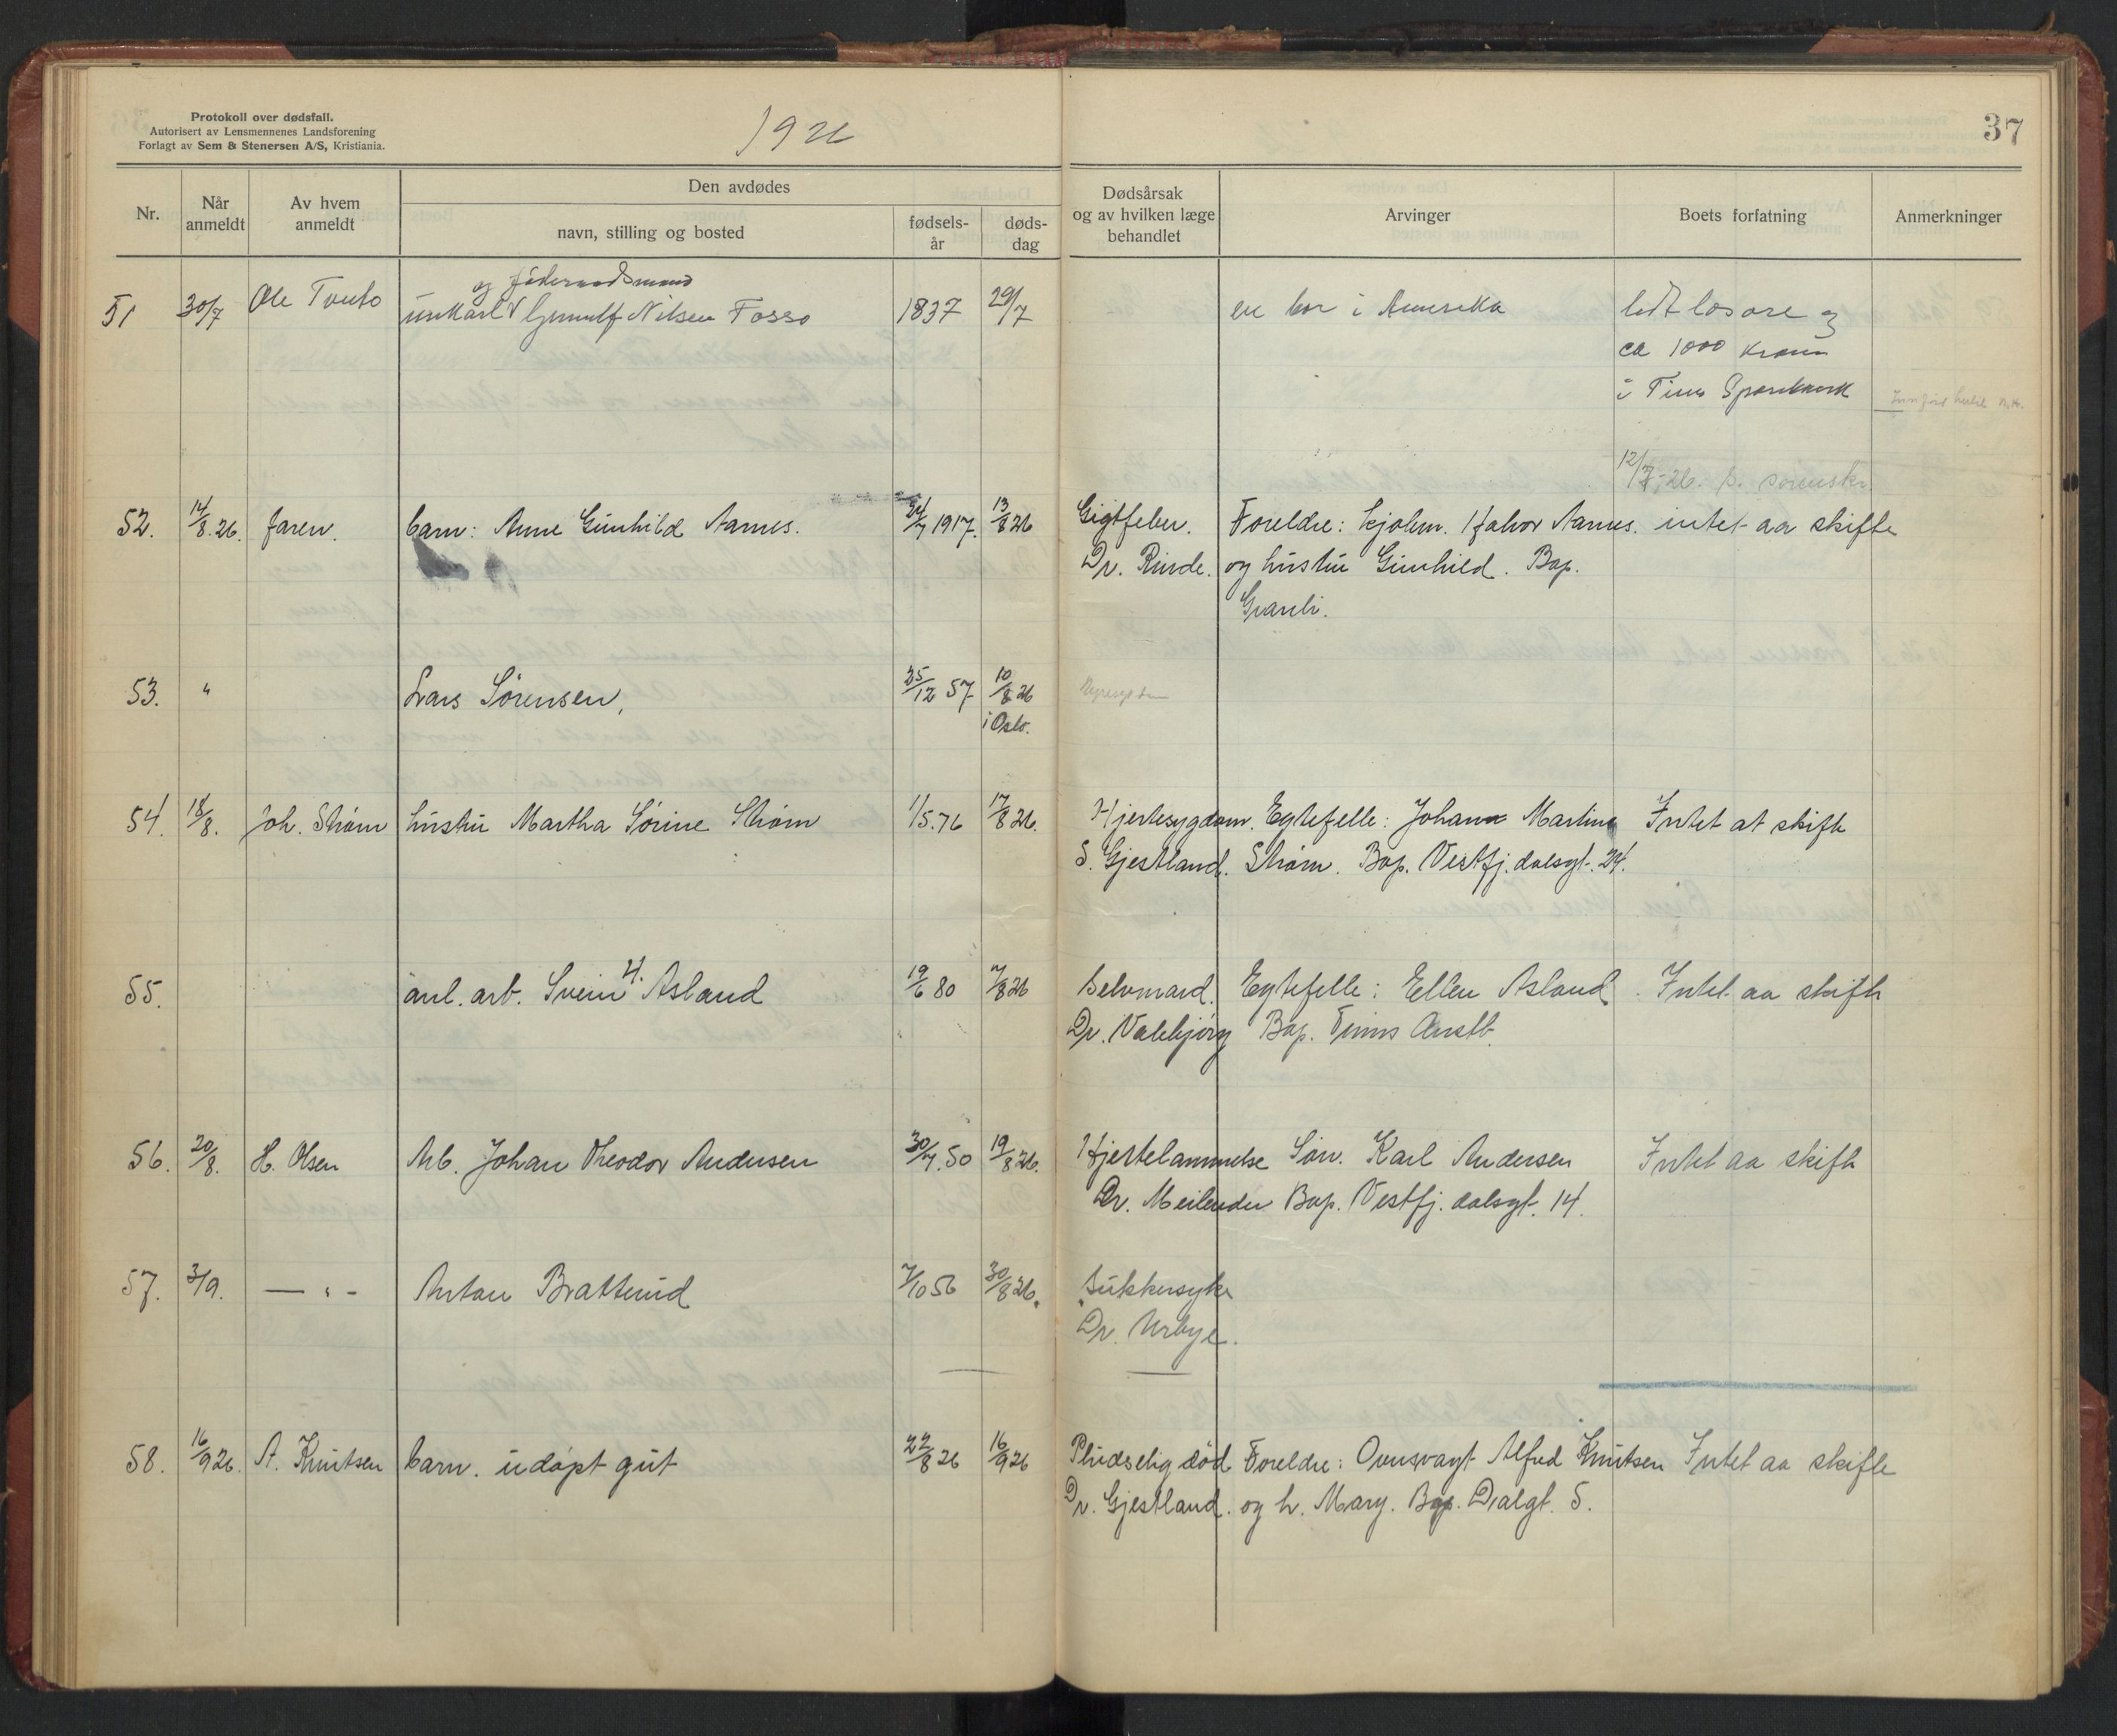 Protokoll over dødsfall.
Autorisert av Lensmennenes Landsforening
Forlagt av Sem & Stenersen A/S, Kristiania.
1926
37
Nr.
Når anmeldt
Av hvem anmeldt
Den avdødes
navn, stilling og bosted
fødsels-år
døds-dag
Dødsårsak og av hvilken læge behandlet
Arvinger
Boets forfatning
Anmerkninger
51 30/7 Ole Tveito ungkarl V Gunnulf Nilsen Fosso 1837 29/7 en bor i Amerika lidt løsøre og
og føderaadsmand
ca 1000 kroner
i Tinn Sparebank
12/7-26.
52. 14/8.26. faren. barn: Anne Gunhild Aarnes. 24/7 1917. 13/8 26 Gigtfeber. Foreldre: Kjøbm. Halvor Aarnes. intet aa skifte
Dr. Rinde. og hustru Gunhild. Bop.
Granli.
53. " Lars Sørensen, 25/12 57 10/8 26
i Oslo.
54. 18/8. Joh. Strøm hustru Martha Sørine Strøm 1/5.76 17/8 26. Hjertesygdom. Egtefelle: Johan Martin Intet at skifte
S. Gjestland. Strøm. Bop. Vestfj.dalsgt. 24.
55. anl. arb. Svein H. Asland 19/6 80 7/8 26 Selvmord. Egtefelle: Ellen Asland. Intet aa skifte
Dr. Valebjørg Bop. Tinns Anstt.
56. 20/8. H. Olsen Arb. Johan Theodor Andersen 30/7.50 19/8 26. Hjertelammelse Søn. Karl Andersen Intet aa skifte
Dr. Meilender Bop. Vestfj.dalsgt. 14.
57. 3/9. — " - Anton Bratterud 7/10 56 30/8 26. Sukkersyke
Dr. Urbye.
58. 16/9 26. A. Knutsen barn. udøpt gut 22/8 26 16/9 26 Pludselig død Foreldre: Ovnsvagt Alfred Knutsen Intet aa skifte
Dr. Gjestland. og h. Mary. Bop. Dalgt. 5.